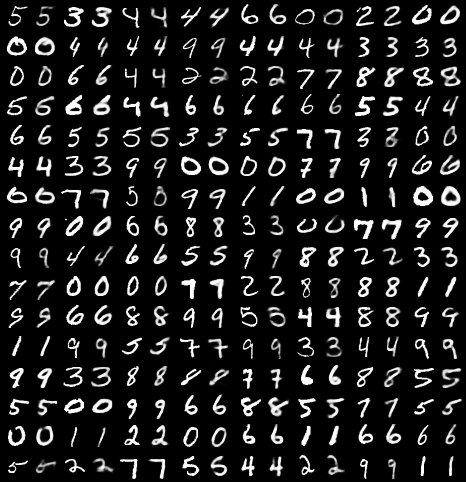 5 5 3 3 4 4 4 4 6 6 0 0 2 2 0 0
0 0 4 4 4 4 9 9 4 4 4 4 3 3 3 3
0 0 6 6 4 4 2 2 2 2 7 7 8 8 8 8
5 5 6 6 4 4 6 6 6 6 6 6 5 5 4 4
6 6 5 5 5 5 3 3 5 5 7 7 3 8 0 0
4 4 3 3 9 9 0 0 0 0 7 7 9 9 6 6
6 6 7 7 5 8 9 9 1 1 0 0 1 1 0 0
9 9 0 0 6 6 8 8 3 3 0 0 7 7 9 9
9 9 4 4 6 6 5 5 9 9 8 8 2 2 3 3
7 7 0 0 0 0 7 7 2 2 8 8 8 8 1 1
5 5 6 6 8 8 9 9 5 5 4 4 8 8 9 9
1 1 9 9 5 5 7 7 9 9 3 3 4 4 9 9
9 9 3 3 8 8 8 8 7 7 6 6 8 8 5 5
5 5 0 0 9 9 6 6 8 8 5 5 7 7 5 5
0 0 1 1 2 2 0 0 6 6 1 1 6 6 6 6
5 5 2 2 7 7 5 5 4 4 2 2 9 9 1 1